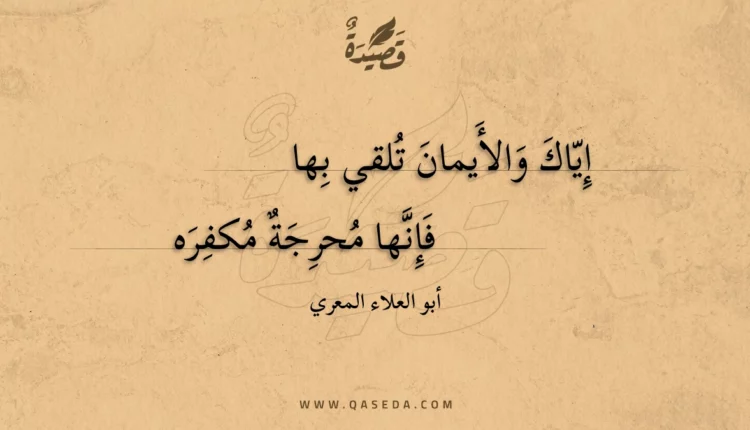 قَصِيدَةٌ
إِيّاكَ وَالأَيمانَ تُلقي بِها
فَإِنَّها مُحرِجَةٌ مُكفِرَه
أبو العلاء المعري
WWW.QASEDA.COM